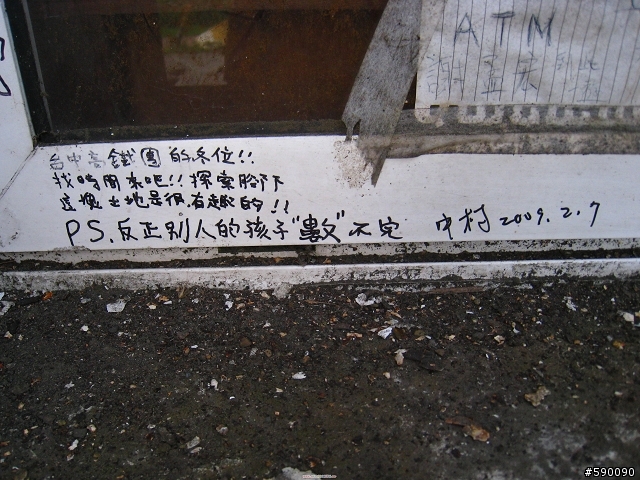 ATM
謝
台中高鐵團的各位!!
找時間來吧!!探索腳下
這塊土地是很有趣的!!
PS.反正別人的孩子"數"不完 中村 2009.2.7
#590090